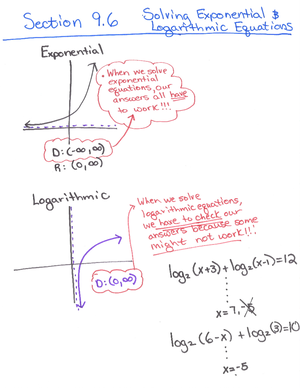 Section 9.6
Solving Exponential &
Logarithmic Equations
Exponential
• When we solve
exponential
equations, our
answers all have
to work!!!
D: (-∞,∞)
R: (0,∞)
Logarithmic
When we solve
logarithmic equations,
we have to check our
answers because some
might not work!!!
D: (0,∞)
log₂(x+3) + log₂(x-1)=12
x=7,
log₂(6-x) + log₂(3)=10
x=-5